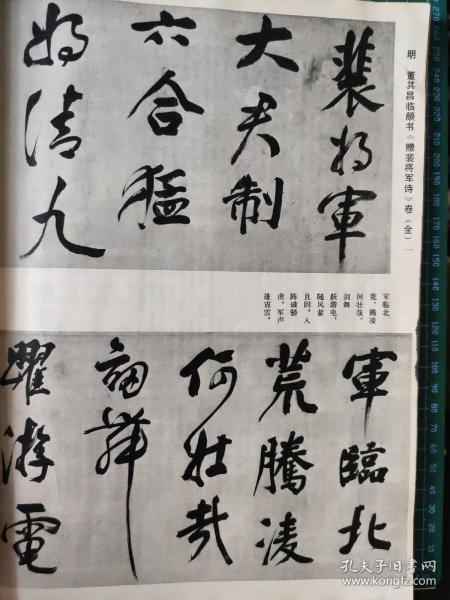 明 董其昌临颜书《赠裴将军诗》卷(全)一
裴将軍
大君制
六合猛
将清九
军临北
荒,腾凌
何壮哉。
剑舞
跃游电,
随风萦
且回。人
阵破骄
虏,军声
雄震雷。
軍臨北
荒騰凌
何壯哉
劒舞
躍游電
孔夫子旧书网
www.kongfz.com